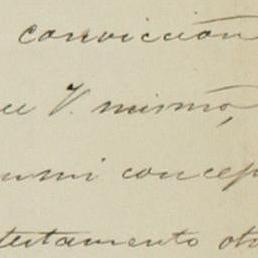 convicción
V. mismo,
mi concep
testamento oto